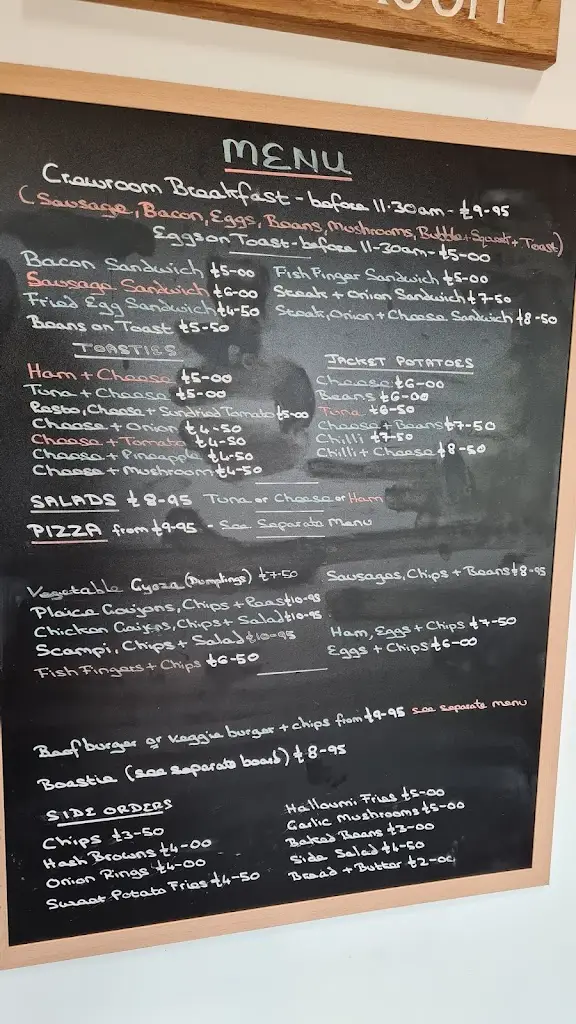 MENU
Crewroom Breakfast - before 11.30am - £9-95
(Sausage, Bacon, Eggs, Beans, Mushrooms, Bubble + Squeak + Toast)
Eggs on Toast - before 11-30am - £5-00
Bacon Sandwich £5-00
Sausage Sandwich £6-00
Fried Egg Sandwich £4-50
Beans on Toast £5-50
Fish Finger Sandwich £5-00
Steak + Onion Sandwich £7-50
Steak, Onion + Cheese Sandwich £8-50
TOASTIES
Ham + Cheese £5-00
Tuna + Cheese £5-00
Pesto, Cheese + Sundried Tomato £5-00
Cheese + Onion £4-50
Cheese + Tomato £4-50
Cheese + Pineapple £4-50
Cheese + Mushroom £4-50
JACKET POTATOES
Cheese £6-00
Beans £6-00
Tuna £6-50
Cheese + Beans £7-50
Chilli £7-50
Chilli + Cheese £8-50
SALADS £8-95 Tuna or Cheese or Ham
PIZZA from £9-95 - See Separate Menu
Vegetable Gyoza (Dumplings) £7-50
Plaice Goujons, Chips + Peas £10-95
Chicken Goujons, Chips + Salad £10-95
Scampi, Chips + Salad £10-95
Fish Fingers + Chips £6-50
Sausages, Chips + Beans £8-95
Ham, Eggs + Chips £7-50
Eggs + Chips £6-00
Beef burger or Veggie burger + chips from £9-95 see separate menu
Boastie (see separate board) £8-95
SIDE ORDERS
Chips £3-50
Hash Browns £4-00
Onion Rings £4-00
Sweet Potato Fries £4-50
Halloumi Fries £5-00
Garlic Mushrooms £5-00
Baked Beans £3-00
Side Salad £4-50
Bread + Butter £2-00